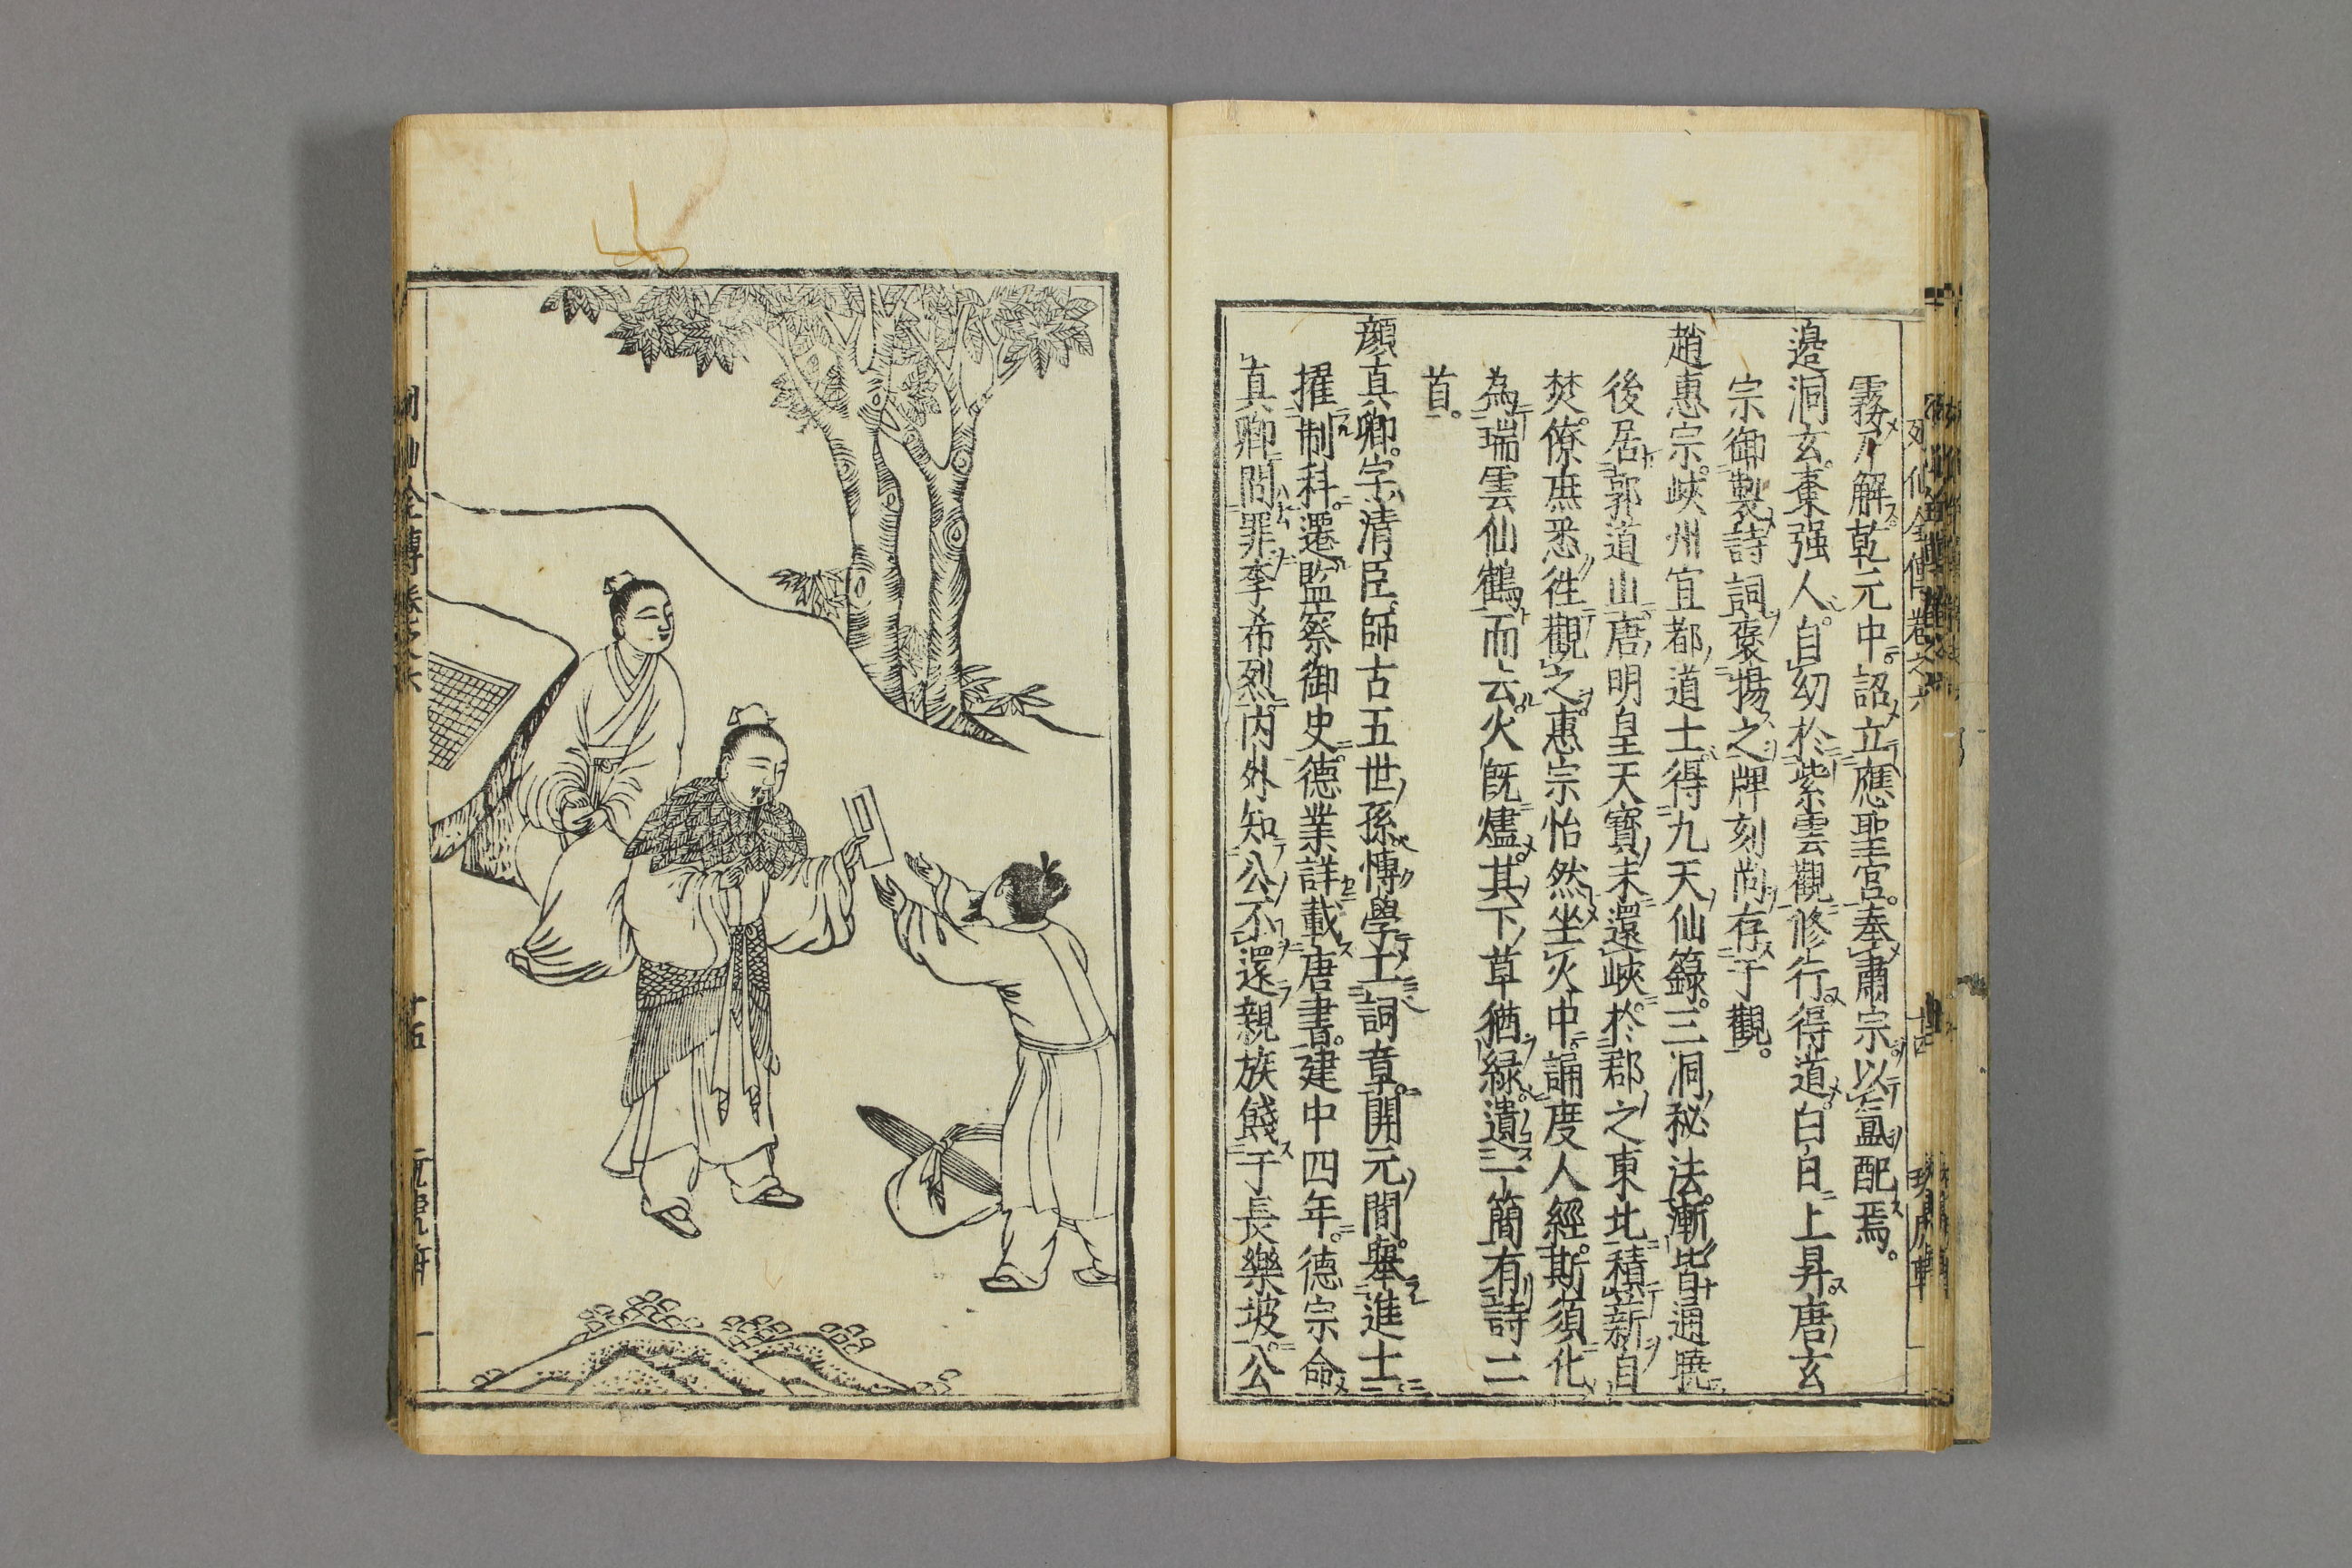 霧乃解乾元中詔立應聖官奉肅宗以真配焉。
邉洞玄。棗强人。自幼於紫雲觀修行得道白日上昇唐玄
宗御製詩詞褒揚之牌刻尚存于觀。
趙惠宗。峽州宜都道士得九天仙籙。三洞秘法。漸皆通曉
後居郭道山唐明皇天寶末還峽於郡之東北積薪自
焚。僚庶悉徃觀之。惠宗怡然坐火中。誦度人經。斯須化
為瑞雲仙鶴而去。火既燼。其下草猶緑。遺一簡有詩二
首。
顔真卿。字清臣。師古五世孫博學工詞章。開元間。舉進士
擢制科。遷監察御史。德業詳載唐書。建中四年。德宗命
真卿問罪李希烈。内外知公不還親族餞于長樂坡。公
列仙全傳卷之六
十四
列仙全傳卷之六
十五